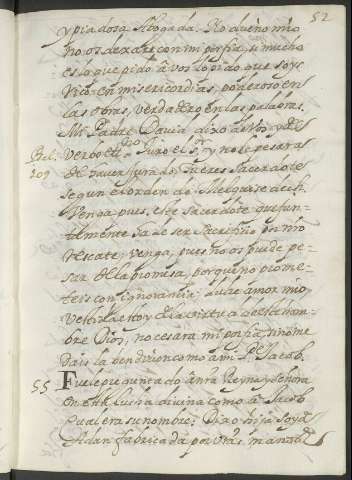 52
y piadosa Abogada. No dueño mio
no os dexare con mi porfia, si mucho
es lo que pido a vos lo pido que soys
Rico en misericordias, poderoso en
las obras, verdadero en las palabras.
Mi Padre David dixo de vos
Verbo
Psal.
109
Juro el Sr. y no le pesara
de haver jurado, tu eres Sacerdote
segun el orden de Melquisedech.
Venga pues este Sacerdote que jun-
tamente ha de ser sacrificio por nro
Rescate; venga, pues no os puede pe-
sar de la promesa, porque no prome-
teis con ignorancia: dulce amor mio,
de este hom-
bre Dios, no cesara mi porfia, si no me
dais la bendizion como a mi Pe. Jacob.
55
Fuele preguntado a nra Reyna y Señora
en esta lucha divina como a Jacob
qual era su nombre; Dixo hija soy de
Adan fabricada por vras manos de